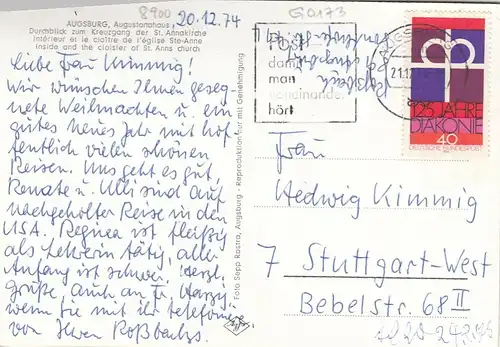 AUGSBURG, Augustanahaus,
Durchblick zum Kreuzgang der St. Annakirche
Intérieur et le cloître de l'église Ste-Anne
Inside and the cloister of St. Anns church
8900
20.12.74
Liebe Frau Kimmig!
Wir wünschen Ihnen geseg-
nete Weihnachten u. ein
gutes Neues Jahr mit hof-
fentlich vielen schönen
Reisen. Uns geht es gut,
Renate u. Ulli sind auf
nachgeholter Reise in den
USA. Regina ist fleißig
als Lehrerin tätig, aller
Anfang ist schwer. Herzl.
Grüße, auch an Fr.
wenn Sie mit ihr telefonieren,
von Ihren Roßbachs.
Foto Sepp Rostra, Augsburg - Reproduktion nur mit Genehmigung
Agfa
G0173
POST
damit
man
voneinander
hört
AUGSBURG
21.12
125 JAHRE
DIAKONIE
40
DEUTSCHE BUNDESPOST
Frau
Hedwig Kimmig
7 Stuttgart-West
Bebelstr. 68 II